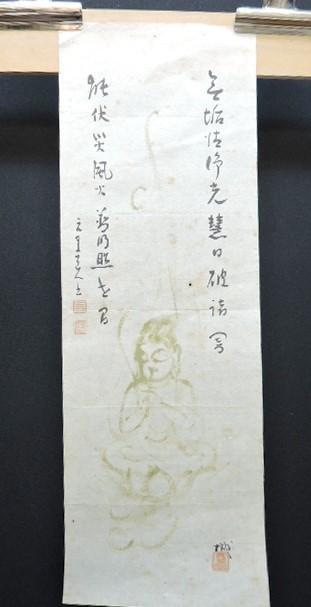 無垢清浄光慧日破諸闇
能伏災風火普明照世間